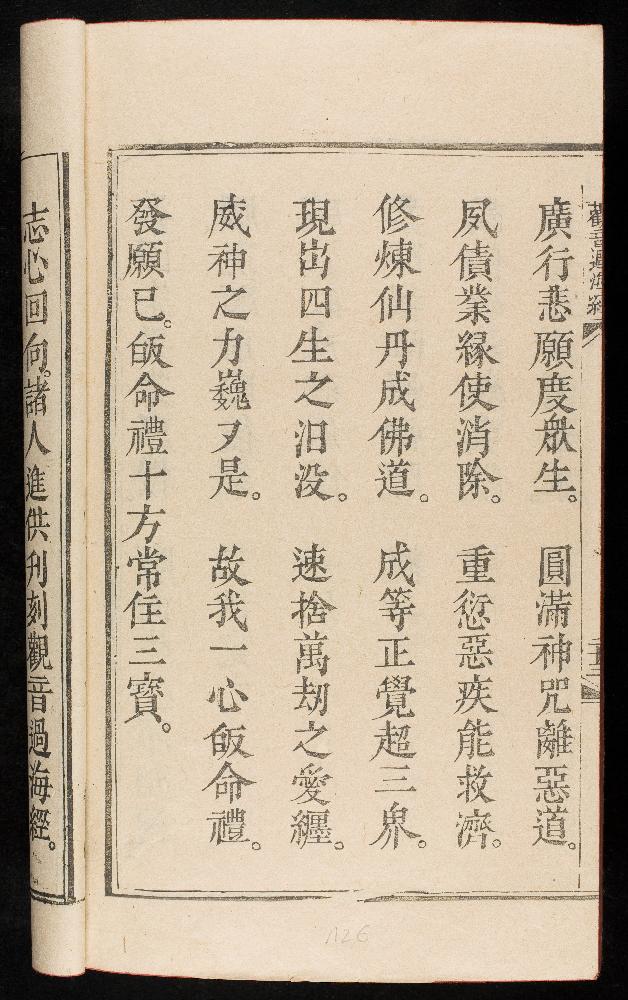 觀音過海經
廣行悲願度衆生。　圓滿神咒離惡道。
夙債業緣使消除。　重愆惡疾能救濟。
修煉仙丹成佛道。　成等正覺超三界。
現出四生之汨没。　速捨萬刼之愛纒。
威神之力巍又是。　故我一心皈命禮。
發願已。皈命禮十方常住三寳。
志心回向。諸人進供刋刻觀音過海經。
1126